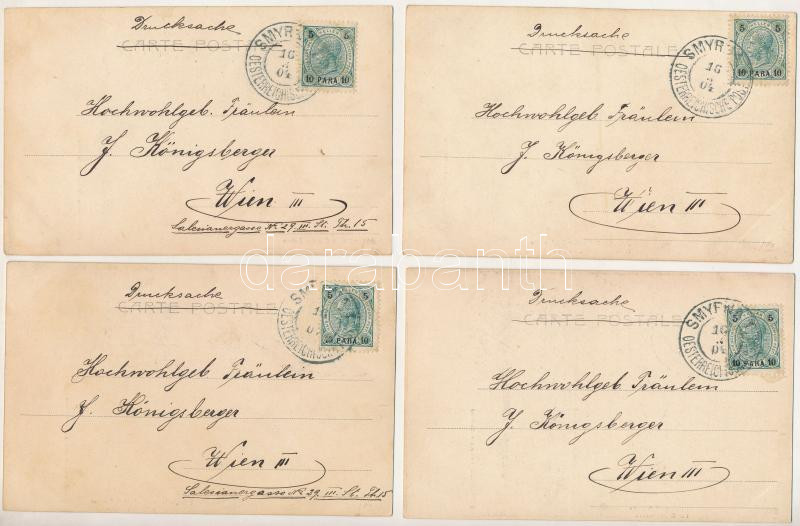 Drucksache
CARTE POSTALE
SMYR
16
04
OESTERREICHISC
5 5
10 PARA 10
Hochwohlgeb. Fräulein
J. Königsberger
Wien III
Salesianergasse No. 29. III. St. Th. 15
Drucksache
CARTE POSTALE
SMYR
16
04
OESTERREICHISCHE POST
5 5
10 PARA 10
Hochwohlgeb Fräulein
J. Königsberger
Wien III
darabanth
Drucksache
CARTE POSTALE
SMY
OESTERREICHISCH
5 5
10 PARA 10
Hochwohlgeb Fräulein
J. Königsberger
Wien III
Salesianergasse No. 29. III. St. Th 15
Drucksache
CARTE POSTALE
SMYRN
16
04
OESTERREICHISCH
5 5
10 PARA 10
Hochwohlgeb Fräulein
J. Königsberger
Wien III